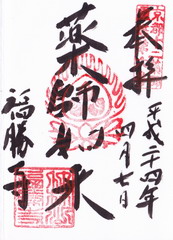 奉拝
平成二十四年
四月七日
薬師如来
福勝寺